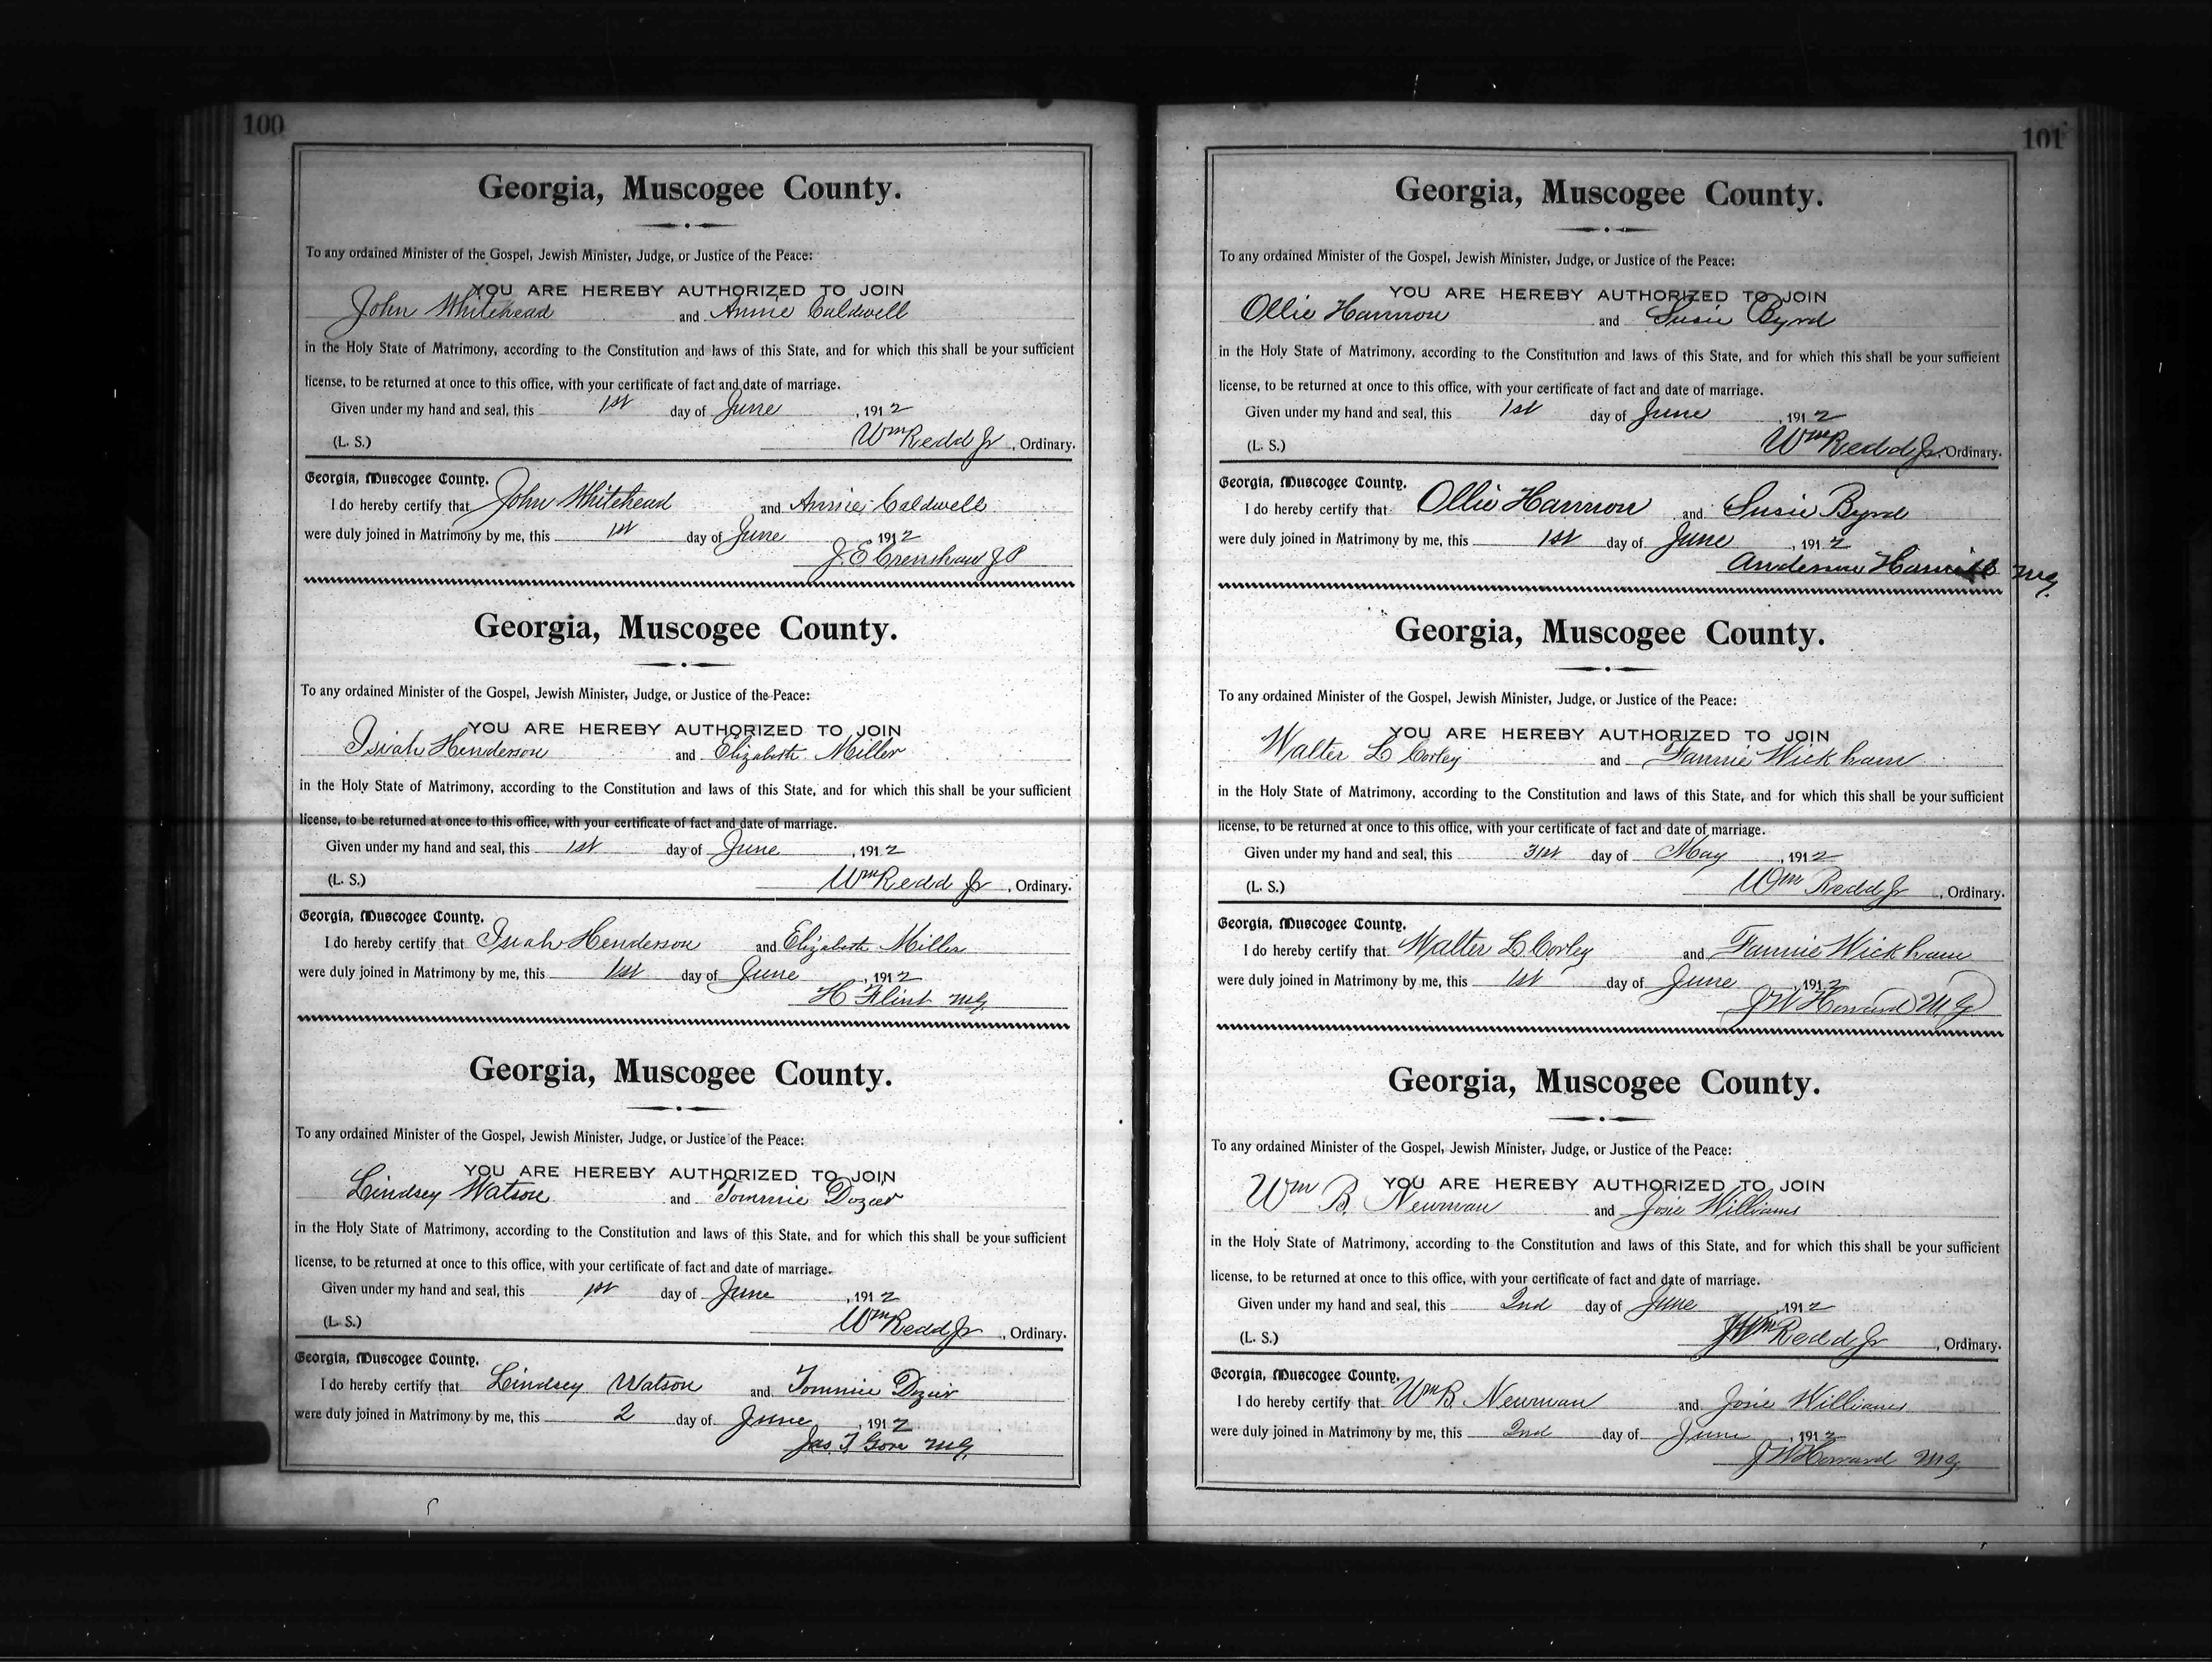 100
Georgia, Muscogee County.
To any ordained Minister of the Gospel, Jewish Minister, Judge, or Justice of the Peace:
YOU ARE HEREBY AUTHORIZED TO JOIN
John Whitehead and Annie Caldwell
in the Holy State of Matrimony, according to the Constitution and laws of this State, and for which this shall be your sufficient
license, to be returned at once to this office, with your certificate of fact and date of marriage.
Given under my hand and seal, this 1st day of June, 1912
(L. S.) Wm Redd Jr, Ordinary.
Georgia, Muscogee County.
I do hereby certify that John Whitehead and Annie Caldwell
were duly joined in Matrimony by me, this 1st day of June, 1912
J. E Crenshaw J P
Georgia, Muscogee County.
To any ordained Minister of the Gospel, Jewish Minister, Judge, or Justice of the Peace:
YOU ARE HEREBY AUTHORIZED TO JOIN
Isiah Henderson and Elizabeth Miller
in the Holy State of Matrimony, according to the Constitution and laws of this State, and for which this shall be your sufficient
license, to be returned at once to this office, with your certificate of fact and date of marriage.
Given under my hand and seal, this 1st day of June, 1912
(L. S.) Wm Redd Jr, Ordinary.
Georgia, Muscogee County.
I do hereby certify that Isiah Henderson and Elizabeth Miller
were duly joined in Matrimony by me, this 1st day of June, 1912
H Flint M.G.
Georgia, Muscogee County.
To any ordained Minister of the Gospel, Jewish Minister, Judge, or Justice of the Peace:
YOU ARE HEREBY AUTHORIZED TO JOIN
Lindsey Watson and Tommie Dozier
in the Holy State of Matrimony, according to the Constitution and laws of this State, and for which this shall be your sufficient
license, to be returned at once to this office, with your certificate of fact and date of marriage.
Given under my hand and seal, this 1st day of June, 1912
(L. S.) Wm Redd Jr, Ordinary.
Georgia, Muscogee County.
I do hereby certify that Lindsey Watson and Tommie Dozier
were duly joined in Matrimony by me, this 2 day of June, 1912
Jas. T Gore M.G.
101
Georgia, Muscogee County.
To any ordained Minister of the Gospel, Jewish Minister, Judge, or Justice of the Peace:
YOU ARE HEREBY AUTHORIZED TO JOIN
Ollie Hannon and Susie Byrd
in the Holy State of Matrimony, according to the Constitution and laws of this State, and for which this shall be your sufficient
license, to be returned at once to this office, with your certificate of fact and date of marriage.
Given under my hand and seal, this 1st day of June, 1912
(L. S.) Wm Redd Jr. Ordinary.
Georgia, Muscogee County.
I do hereby certify that Ollie Hannon and Susie Byrd
were duly joined in Matrimony by me, this 1st day of June, 1912
Anderson M.G.
Georgia, Muscogee County.
To any ordained Minister of the Gospel, Jewish Minister, Judge, or Justice of the Peace:
YOU ARE HEREBY AUTHORIZED TO JOIN
Walter L Corley and Fannie Wickham
in the Holy State of Matrimony, according to the Constitution and laws of this State, and for which this shall be your sufficient
license, to be returned at once to this office, with your certificate of fact and date of marriage.
Given under my hand and seal, this 31st day of May, 1912
(L. S.) Wm Redd Jr, Ordinary.
Georgia, Muscogee County.
I do hereby certify that Walter L Corley and Fannie Wickham
were duly joined in Matrimony by me, this 1st day of June, 1912
J W Howard M G
Georgia, Muscogee County.
To any ordained Minister of the Gospel, Jewish Minister, Judge, or Justice of the Peace:
YOU ARE HEREBY AUTHORIZED TO JOIN
Wm B. Newman and Josie Williams
in the Holy State of Matrimony, according to the Constitution and laws of this State, and for which this shall be your sufficient
license, to be returned at once to this office, with your certificate of fact and date of marriage.
Given under my hand and seal, this 2nd day of June, 1912
(L. S.) Wm Redd Jr, Ordinary.
Georgia, Muscogee County.
I do hereby certify that Wm B. Newman and Josie Williams
were duly joined in Matrimony by me, this 2nd day of June, 1912
J W Howard M G